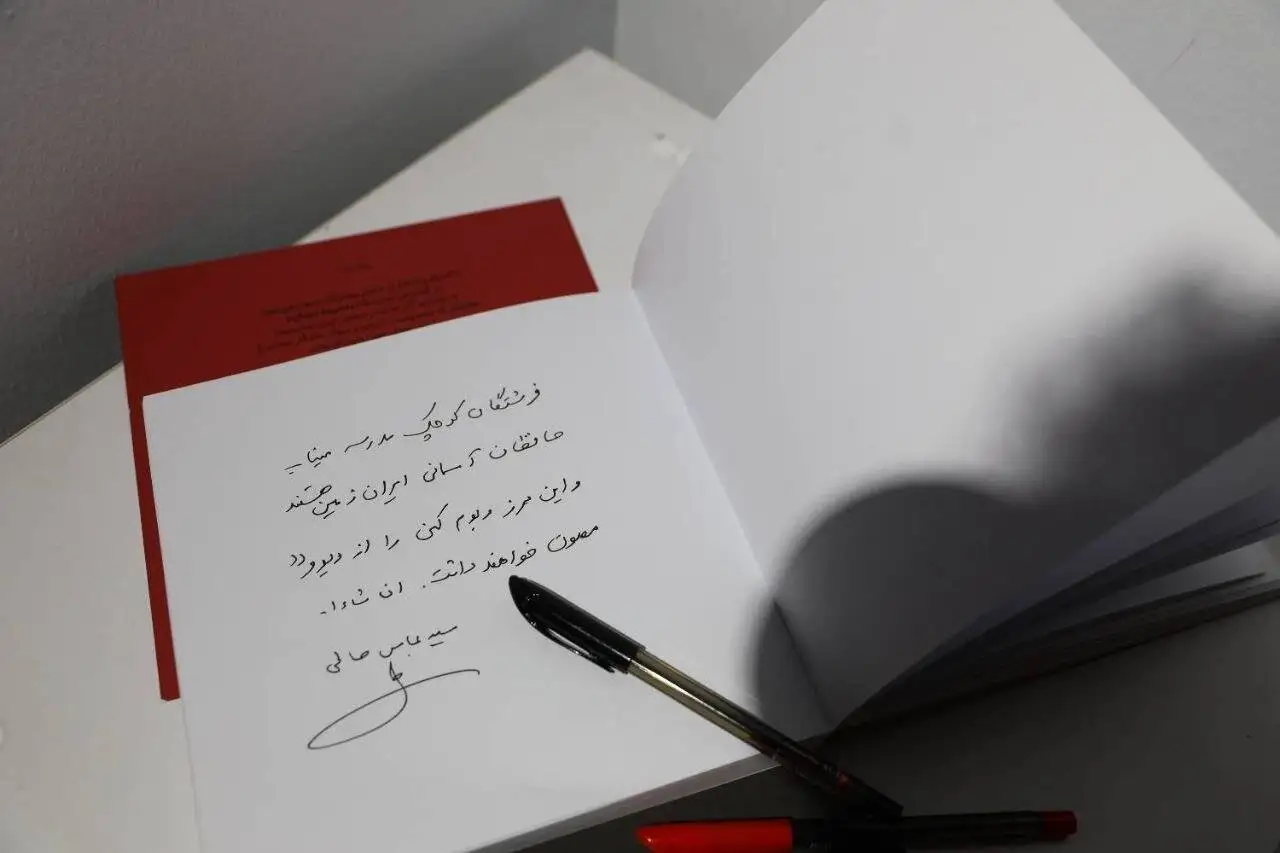 فرشتگان کوچک مدرسه میناب
حافظان آسمانی ایران زمین هستند
و این مرز و بوم کهن را از دیو و دد
مصون خواهند داشت. ان شاءا..
سید عباس صالحی